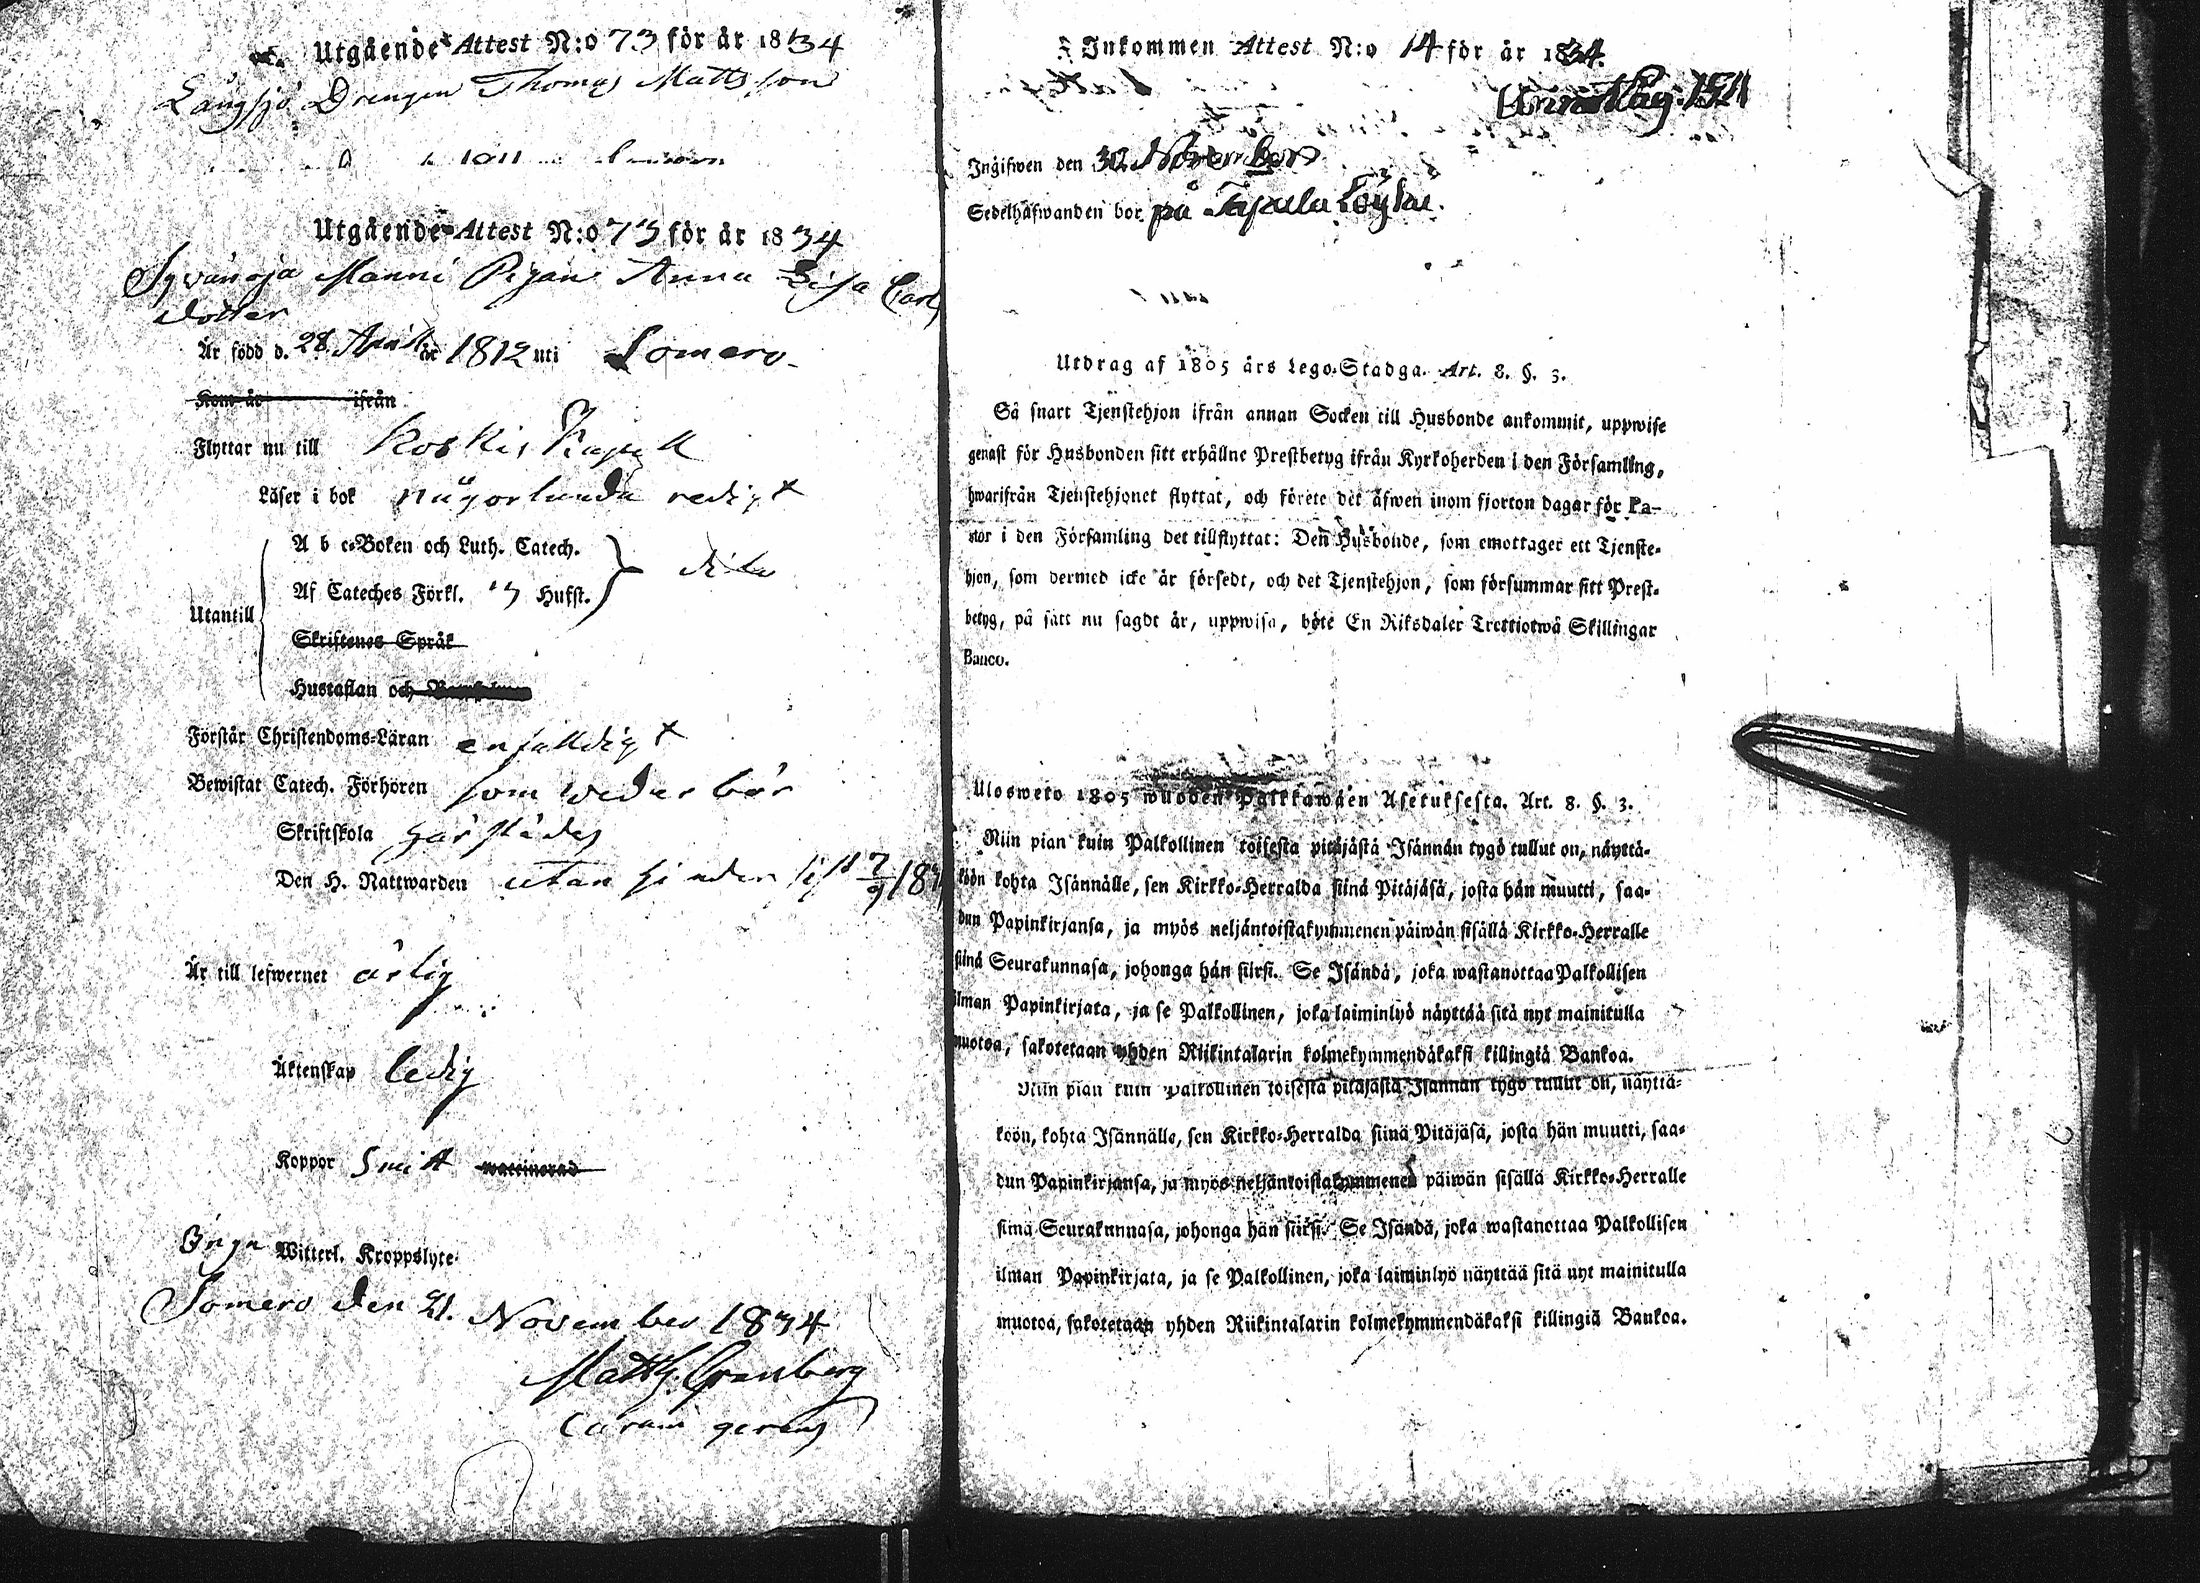 Utgående Attest N:o 73 för år 1834
Långsjö Drengen Thomas Matts son
Utgående Attest N:o 73 för år 1834
Sywänoja Manni Pigan Anna Lisa Carls
dotter
Är född d. 28 April år 1812 uti Somero
Kom år ifrån
Flyttar nu till Koskis Kapell
Läser i bok någorlunda redigt
A b c-Boken och Luth. Catech.
Af Cateches Förkl. Husst.
Utantill
Skriftenes Språk
Hustaflan och
Förstår Christendoms-Läran enfalldigt
Bewistat Catech. Förhören som wederbör
Skriftskola
Den H. Nattwarden utan hinder sist 7/9 18
Är till lefwernet ärlig
Äktenskap ledig
Koppor haft waccinerad
Inga Witterl. Kroppslyte
Somero den 21. November 1834
Matth. Granberg
Curam gerens
Inkommen Attest N:o 14 för år 1834.
Ingifwen den 30 November
Sedelhafwanden bor på Tapala Löyla.
Utdrag af 1805 års Lego-Stadga. Art. 8. §. 3.
Så snart Tjenstehjon ifrån annan Socken till Husbonde ankommit, uppwise
genast för Husbonden sitt erhållne Prestbetyg ifrån Kyrkoherden i den Församling,
hwarifrån Tjenstehjonet flyttat, och förete det äfwen inom fjorton dagar för Pa-
stor i den Församling det tillflyttat: Den Husbonde, som emottager ett Tjenste-
hjon, som dermed icke är försedt, och det Tjenstehjon, som försummar sitt Prest-
betyg, på sätt nu sagdt är, uppwisa, böte En Riksdaler Trettiotwå Skillingar
Banco.
Ulosweto 1805 wuoden Palkkawäen Asetuksesta. Art. 8. §. 3.
Niin pian kuin Palkollinen toisesta pitäjästä Isännän tygö tullut on, näyttä-
köön kohta Isännälle, sen Kirkko-Herralda siinä Pitäjäsä, josta hän muutti, saa-
dun Papinkirjansa, ja myös neljäntoistakymmenen päiwän sisällä Kirkko-Herralle
siinä Seurakunnasa, johonga hän siirsi. Se Isändä, joka wastanottaa Palkollisen
ilman Papinkirjata, ja se Palkollinen, joka laiminlyö näyttää sitä nyt mainitulla
muotoa, sakotetaan yhden Riikintalarin kolmekymmendäkaksi killingiä Bankoa.
Niin pian kuin Palkollinen toisesta pitäjästä Isännän tygö tullut on, näyttä-
köön, kohta Isännälle, sen Kirkko-Herralda siinä Pitäjäsä, josta hän muutti, saa-
dun Papinkirjansa, ja myös neljäntoistakymmenen päiwän sisällä Kirkko-Herralle
siinä Seurakunnasa, johonga hän siirsi. Se Isändä, joka wastanottaa Palkollisen
ilman Papinkirjata, ja se Palkollinen, joka laiminlyö näyttää sitä nyt mainitulla
muotoa, sakotetaan yhden Riikintalarin kolmekymmendäkaksi killingiä Bankoa.